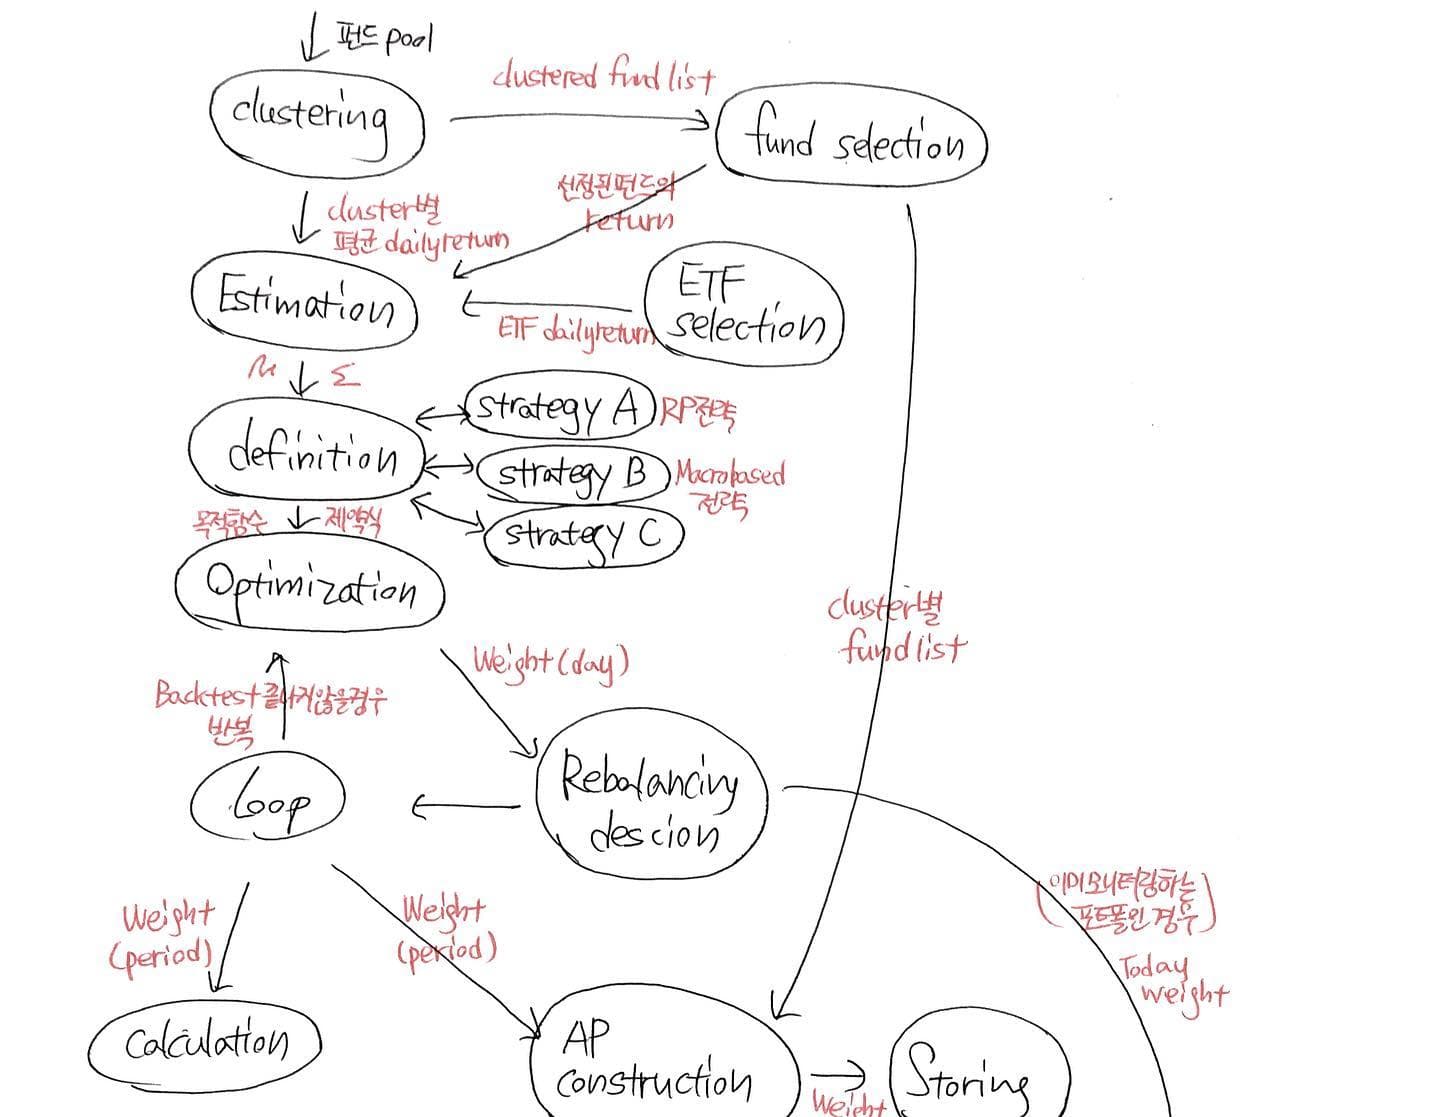 펀드 pool
clustering
clustered fund list
fund selection
cluster별
평균 daily return
선정된 펀드의
return
Estimation
ETF
selection
ETF daily return
Σ
definition
strategy A
RP전략
strategy B
Macro based
전략
strategy C
목적함수
제약식
Optimization
Weight (day)
cluster별
fund list
Backtest 끝나지 않을 경우
반복
Loop
Rebalancing
descion
(이미 모니터링하는
포트폴인 경우)
Today
weight
Weight
(period)
Weight
(period)
Calculation
AP
construction
Weight
Storing